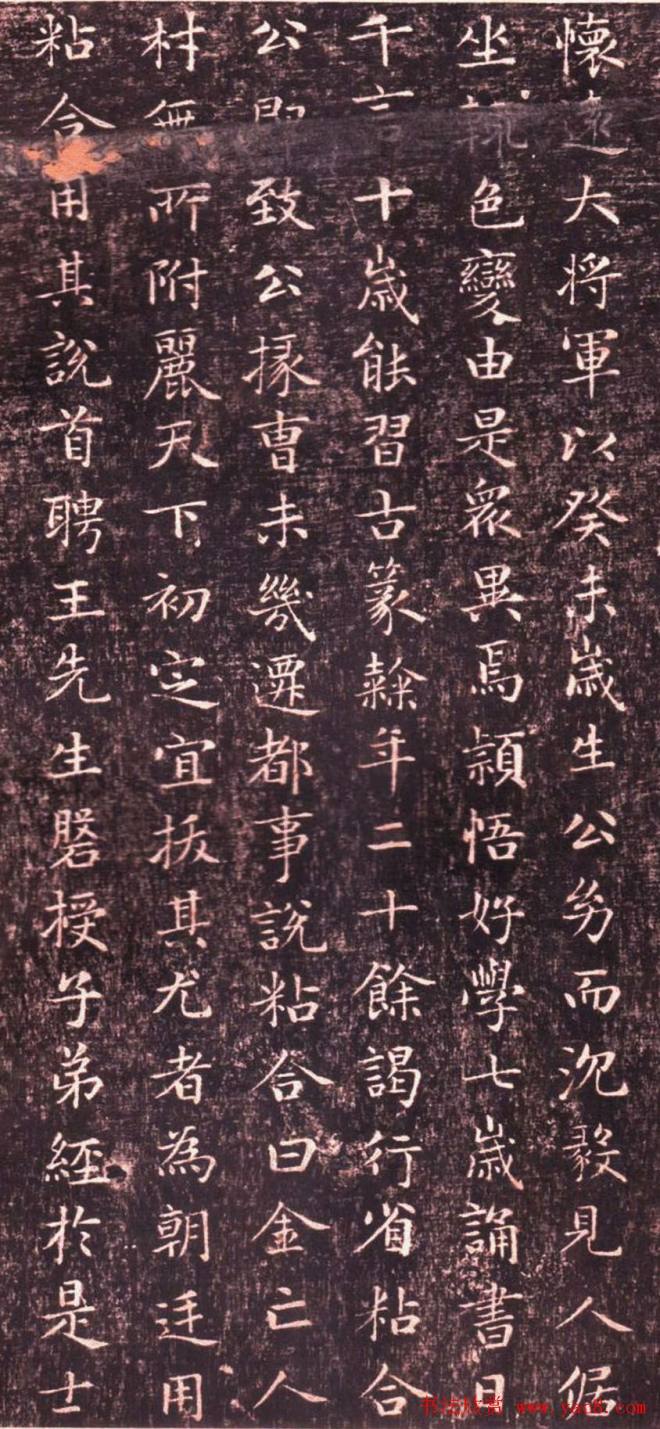 懷遠大將軍以癸未歲生公幼而沉毅見人倨
坐輒色變由是衆異焉穎悟好學七歲誦書日
千言十歲能習古篆籒年二十餘謁行省粘合
公即致公掾曹未幾遷都事說粘合曰金亡人
材無所附麗天下初定宜拔其尤者為朝廷用
粘合用其說首聘王先生磐授子弟經於是士
书法欣赏 www.yac8.com